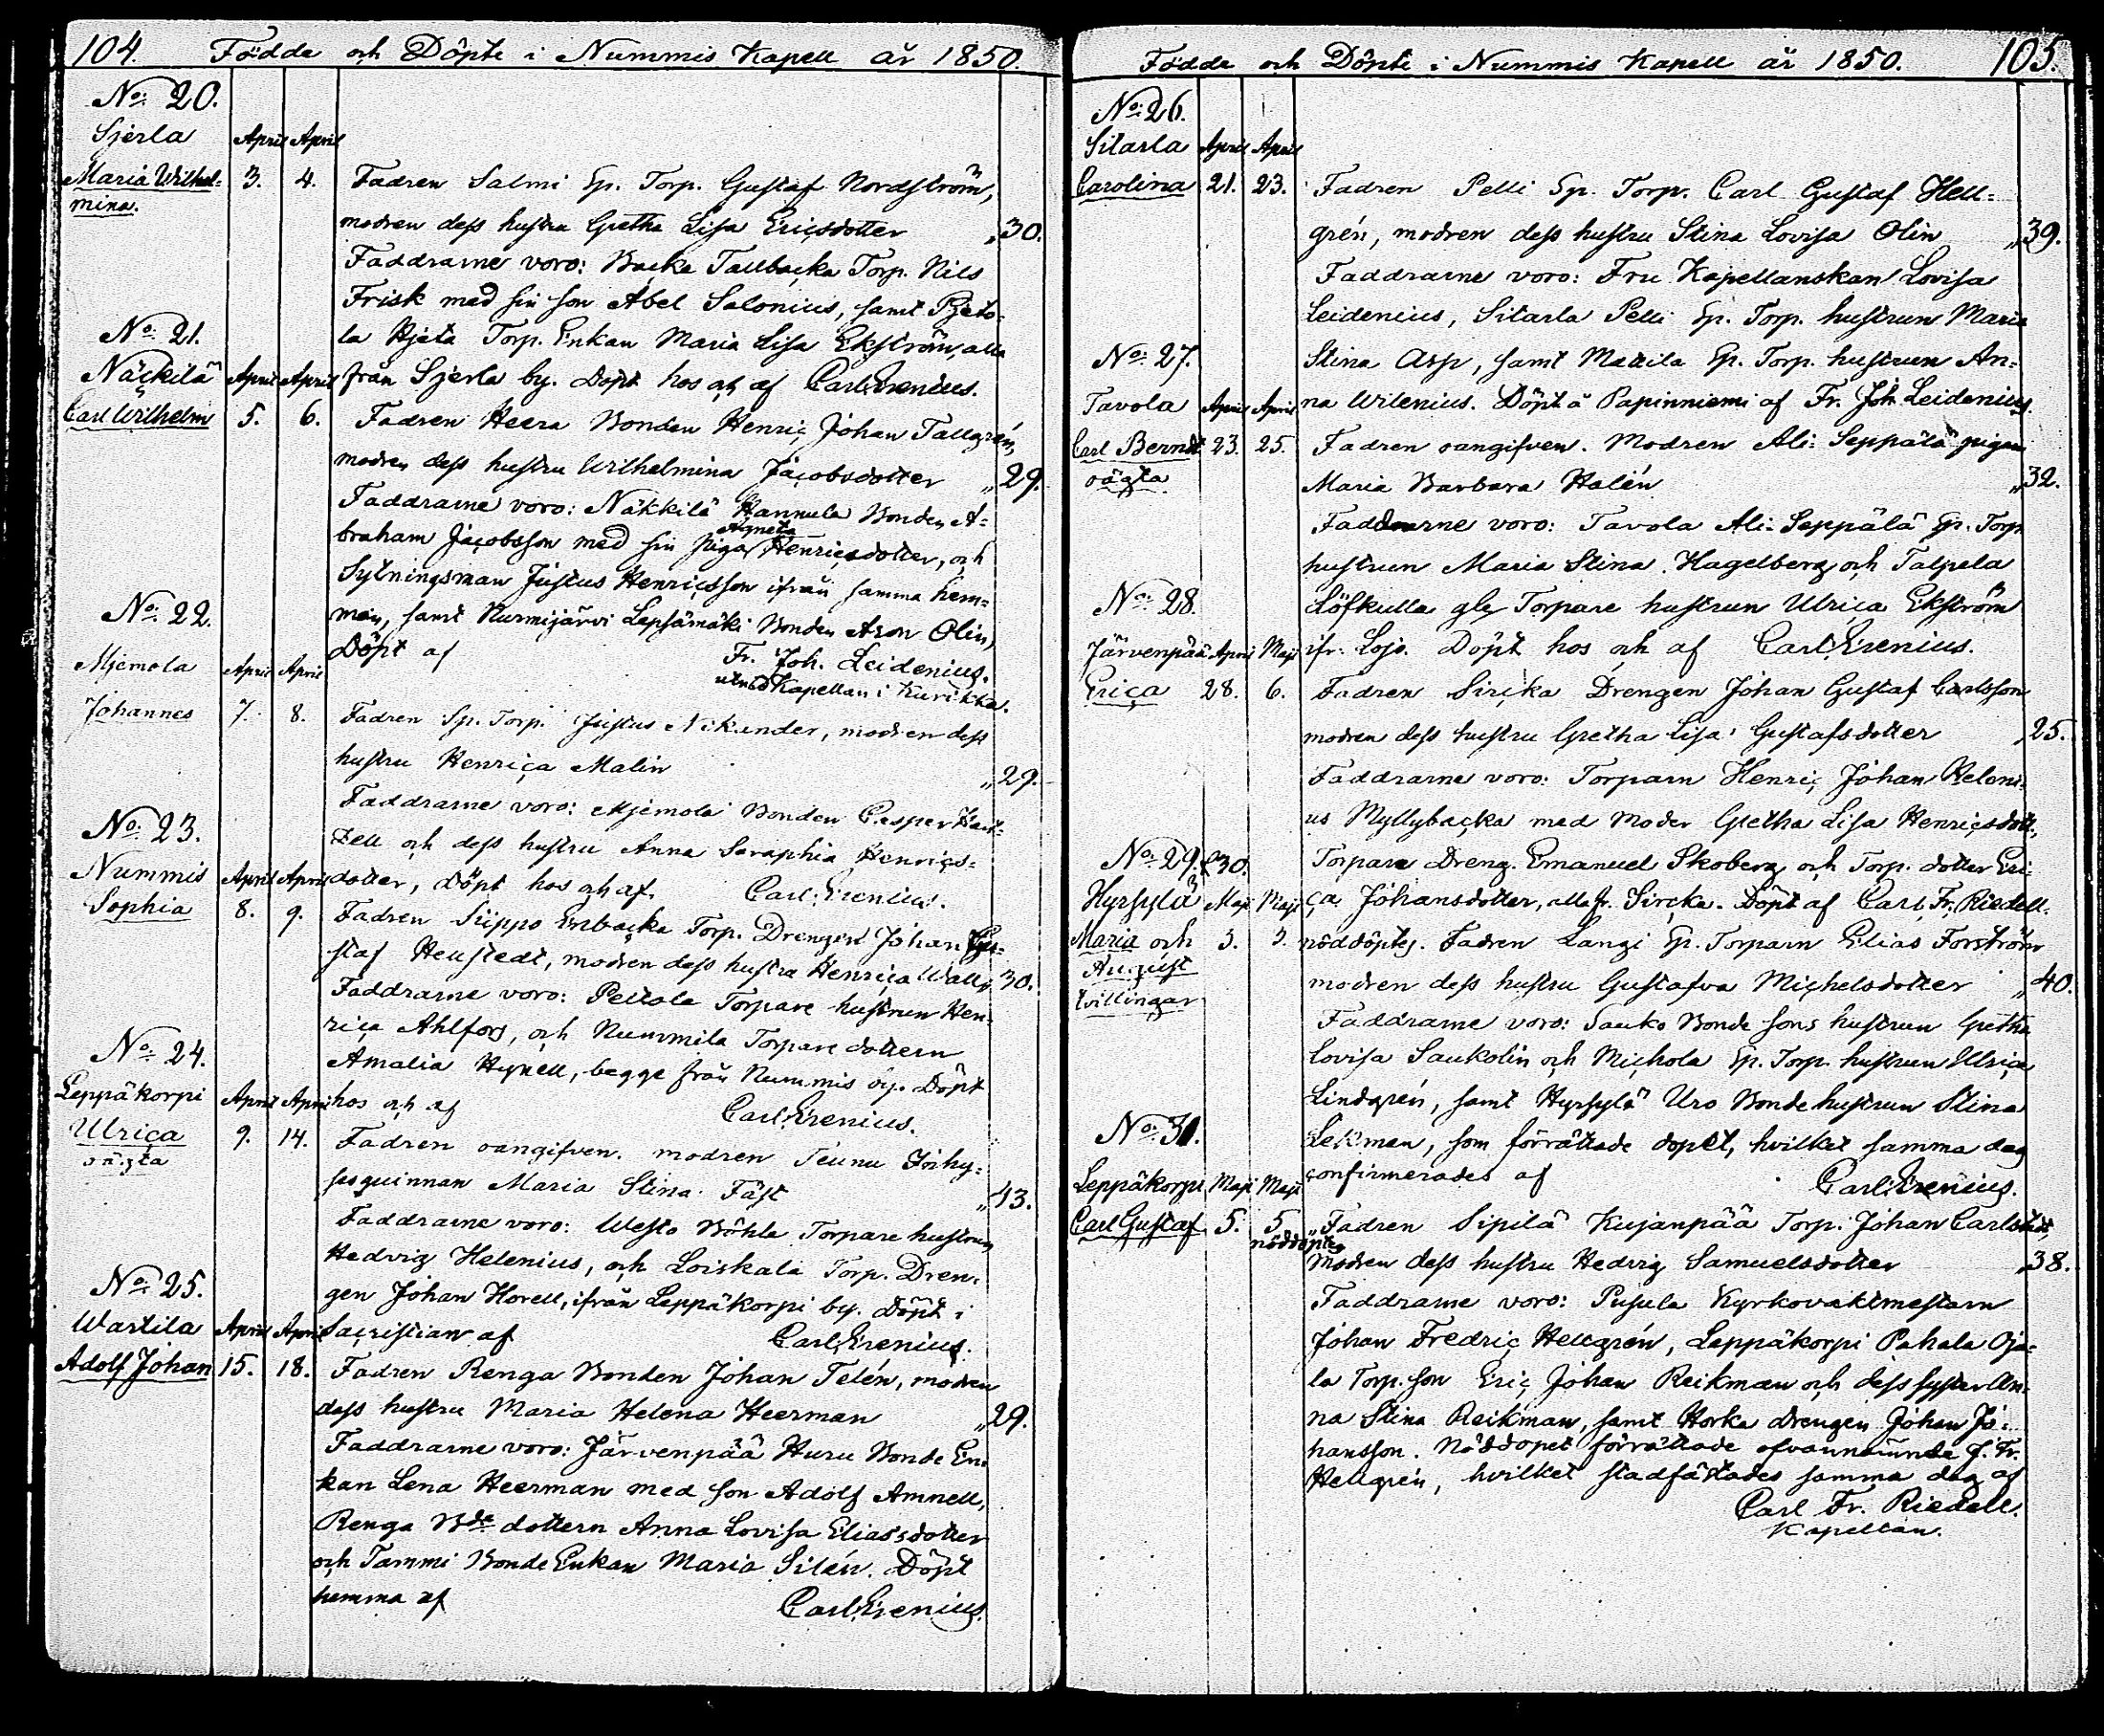 104. Födde och Döpte i Nummis Kapell år 1850.
No: 20.
Sjerla April April
Maria Wilhel- 3. 4. Fadren Salmi Sp. Torp. Gustaf Nordström,
mina. modren dess hustru Gretha Lisa Ericsdotter „30.
Faddrarne voro: Backa Tallbacka Torp. Nils
Frisk med sin son Abel Salonius, samt Pjeto-
la Hjeta Torp. Enkan Maria Lisa Ekström, alla
från Sjerla by. Döpt hos och af Carl Erenius.
No: 21.
Näckilä April April
Carl Wilhelm 5. 6. Fadren Heera Bonden Henric Johan Tallgrén,
modren dess hustru Wilhelmina Jacobsdotter „29.
Faddrarne voro: Näkkilä Hannula Bonden A-
braham Jacobsson med sin piga Agneta Henricsdotter, och
Sytningsman Justus Henricsson ifrån samma hem-
man, samt Nurmijärvi Lepsämäki Bonden Aron Olin,
Döpt af Fr. Joh. Leidenius.
utnd Kapellan i Kurikka.
No: 22.
Mjemola April April
Johannes 7. 8. Fadren Sp. Torp. Justus Nikander, modren dess
hustru Henrica Malin „29.
Faddrarne voro: Mjemola Bonden Casper
zell och dess hustru Anna Seraphia Henrics-
dotter, Döpt hos och af. Carl Erenius.
No: 23.
Nummis April April
Sophia 8. 9. Fadren Siippo Enbacka Torp. Drengen Johan Gu-
staf Heustedt, modren dess hustru Henrica Wall „30.
Faddrarne voro: Peltola Torpare hustrun Hen-
rica Ahlfors, och Nummila Torpare dottern
Amalia Hynell, begge från Nummis by. Döpt
hos och af Carl Erenius.
No: 24.
Leppäkorpi April April
Ulrica 9. 14. Fadren oangifven. modren Teunu Inhy-
oägta sesquinnan Maria Stina Fäst „43.
Faddrarne voro: Westo Böhle Torpare hustrun
Hedvig Helenius, och Loiskala Torp. Dren-
gen Johan Horell, ifrån Leppäkorpi by. Döpt i
Sacristian af Carl Erenius.
No: 25.
Wastila April April
Adolf Johan 15. 18. Fadren Renga Bonden Johan Telén, modren
dess hustru Maria Helena Heerman „29.
Faddrarne voro: Järvenpää Huru Bonde En-
kan Lena Heerman med son Adolf Amnell,
Renga Bde dottern Anna Lovisa Eliasdotter
och Tammi Bonde Enkan Maria Silén. Döpt
hemma af Carl Erenius.
Födde och Döpte i Nummis Kapell år 1850. 105.
No: 26.
Sitarla April April
Carolina 21. 23. Fadren Pelli Sp. Torp. Carl Gustaf Hell-
grén, modren dess hustru Stina Lovisa Olin „39.
Faddrarne voro: Fru Kapellanskan Lovisa
Leidenius, Sitarla Pelli Sp. Torp. hustrun Maria
Stina Asp, samt Mattila Sp. Torp. hustrun An-
na Wilenius. Döpt å Papinniemi af Fr. Joh. Leidenius.
No: 27.
Tavola April April
Carl Berndt 23. 25. Fadren oangifven. Modren Ali: Seppälä pigan
oägta Maria Barbara Halén „32.
Faddrarne voro: Tavola Ali-Seppälä Sp. Torp.
hustrun Maria Stina Hagelberg och Talpela
Löfkulla Torpare hustrun Ulrica Ekström
ifr: Lojo. Döpt hos och af Carl Erenius.
No: 28.
Järvenpää April Maji
Erica 28. 6. Fadren Sircka Drengen Johan Gustaf Carlsson
modren dess hustru Gretha Lisa Gustafsdotter „25.
Faddrarne voro: Torparn Henric Johan Heleni-
us Myllybacka med Moder Gretha Lisa Henricsdott.,
Torpare Dreng. Emanuel Skoberg och Torp. dotter Eri-
ca Johansdotter, alla fr. Sircka. Döpt af Carl Fr. Riedell.
No: 29. & 30.
Hyrsylä Maji Maji
Maria och 3. 3. nöddöptes. Fadren Langi Sp. Torparn Elias Forström
August modren dess hustru Gustafva Michelsdotter „40.
tvillingar Faddrarne voro: Sauko Bonde sons hustrun Gretha
Lovisa Saukolin och Michola Sp. Torp. hustrun Ulrica
Lindgrén, samt Hyrsylä Uro Bonde hustrun Stina
Lekman, som förrättade dopet, hvilket samma dag
confirmerades af Carl Erenius.
No: 31.
Leppäkorpi Maji Maji
Carl Gustaf 5. 5 nöddöptes „Fadren Sipilä Kujanpää Torp. Johan Carlstedt,
Modren dess hustru Hedvig Samuelsdotter „38.
Faddrarne voro: Pusula Kyrkovaktmestarn
Johan Fredric Hellgrén, Leppäkorpi Pahala Oja-
la Torp. son Eric Johan Reikman och dess syster An-
na Stina Reikman, samt Horka drengen Johan Jo-
hansson. Nöddopet förrättade ofvannämnde J. Fr.
Hellgrén, hvilket stadfästades samma dag af
Carl Fr. Riedell.
Kapellan.